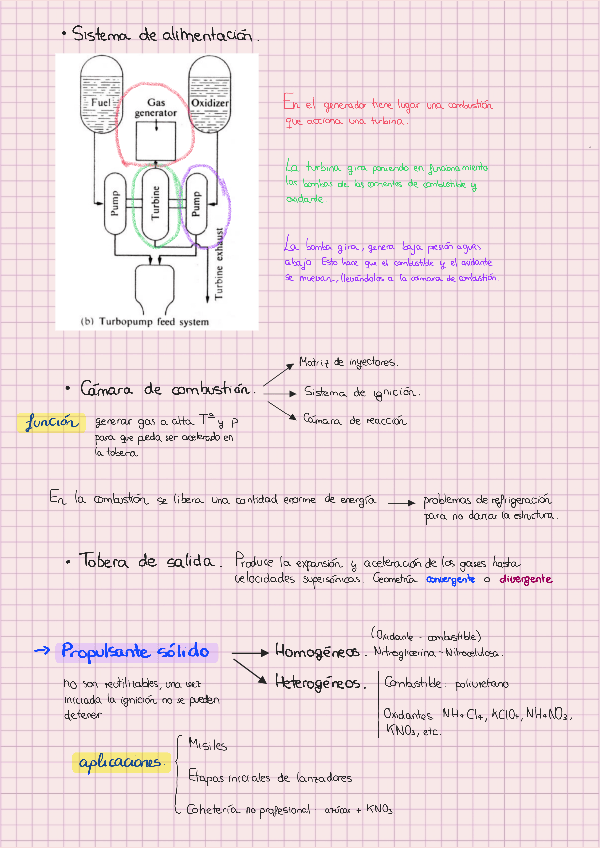 • Sistema de alimentación.
Fuel
Gas
generator
Oxidizer
Pump
Turbine
Pump
Turbine exhaust
(b) Turbopump feed system
En el generador tiene lugar una combustión
que acciona una turbina.
La turbina gira poniendo en funcionamiento
las bombas de las corrientes de combustible y
oxidante
La bomba gira, genera baja presión aguas
abajo. Esto hace que el combustible y el oxidante
se muevan, llevándolos a la cámara de combustión
• Cámara de combustión.
Matriz de inyectores.
Sistema de ignición.
Cámara de reacción
función
generar gas a alta Tª y p
para que pueda ser acelerado en
la tobera
En la combustión se libera una cantidad enorme de energía → problemas de refrigeración
para no dañar la estructura.
• Tobera de salida. Produce la expansión y aceleración de los gases hasta
velocidades supersónicas. Geometría convergente o divergente
→ Propulsante sólido
(Oxidante - combustible)
Homogéneos. Nitroglicerina - Nitrocelulosa.
Heterogéneos.
Combustible: poliuretano
Oxidantes NH4Cl4, KClO4, NH4NO3,
KNO3, etc.
no son reutilizables, una vez
iniciada la ignición no se pueden
detener
aplicaciones.
Misiles
Etapas iniciales de lanzadores
Cohetería no profesional azúcar + KNO3